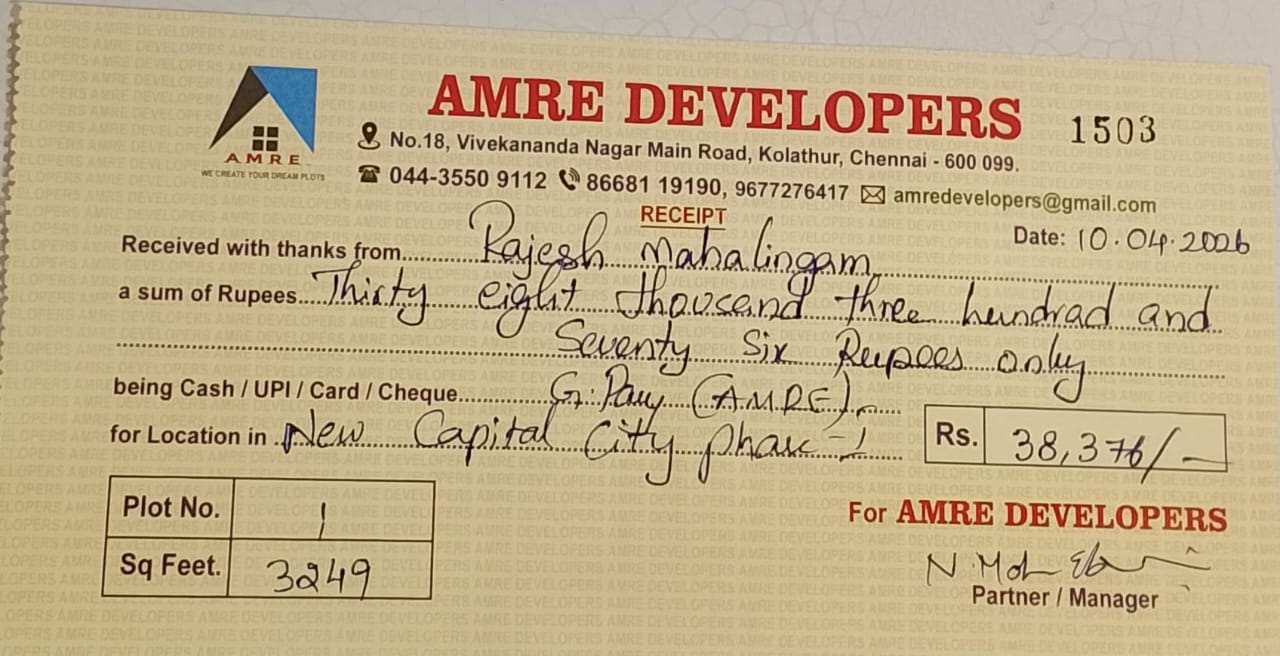 AMRE
WE CREATE YOUR DREAM PLOTS
AMRE DEVELOPERS 1503
No.18, Vivekananda Nagar Main Road, Kolathur, Chennai - 600 099.
044-3550 9112 86681 19190, 9677276417 amredevelopers@gmail.com
RECEIPT
Date: 10.04.2026
Received with thanks from Rajesh Mahalingam
a sum of Rupees Thirty eight thousand three hundrad and
Seventy Six Rupees only
being Cash / UPI / Card / Cheque G.Pay (AMRE)
for Location in New Capital City phase-1
Rs. 38,376/-
Plot No. 1
Sq Feet. 3249
For AMRE DEVELOPERS
N. Moh
Partner / Manager